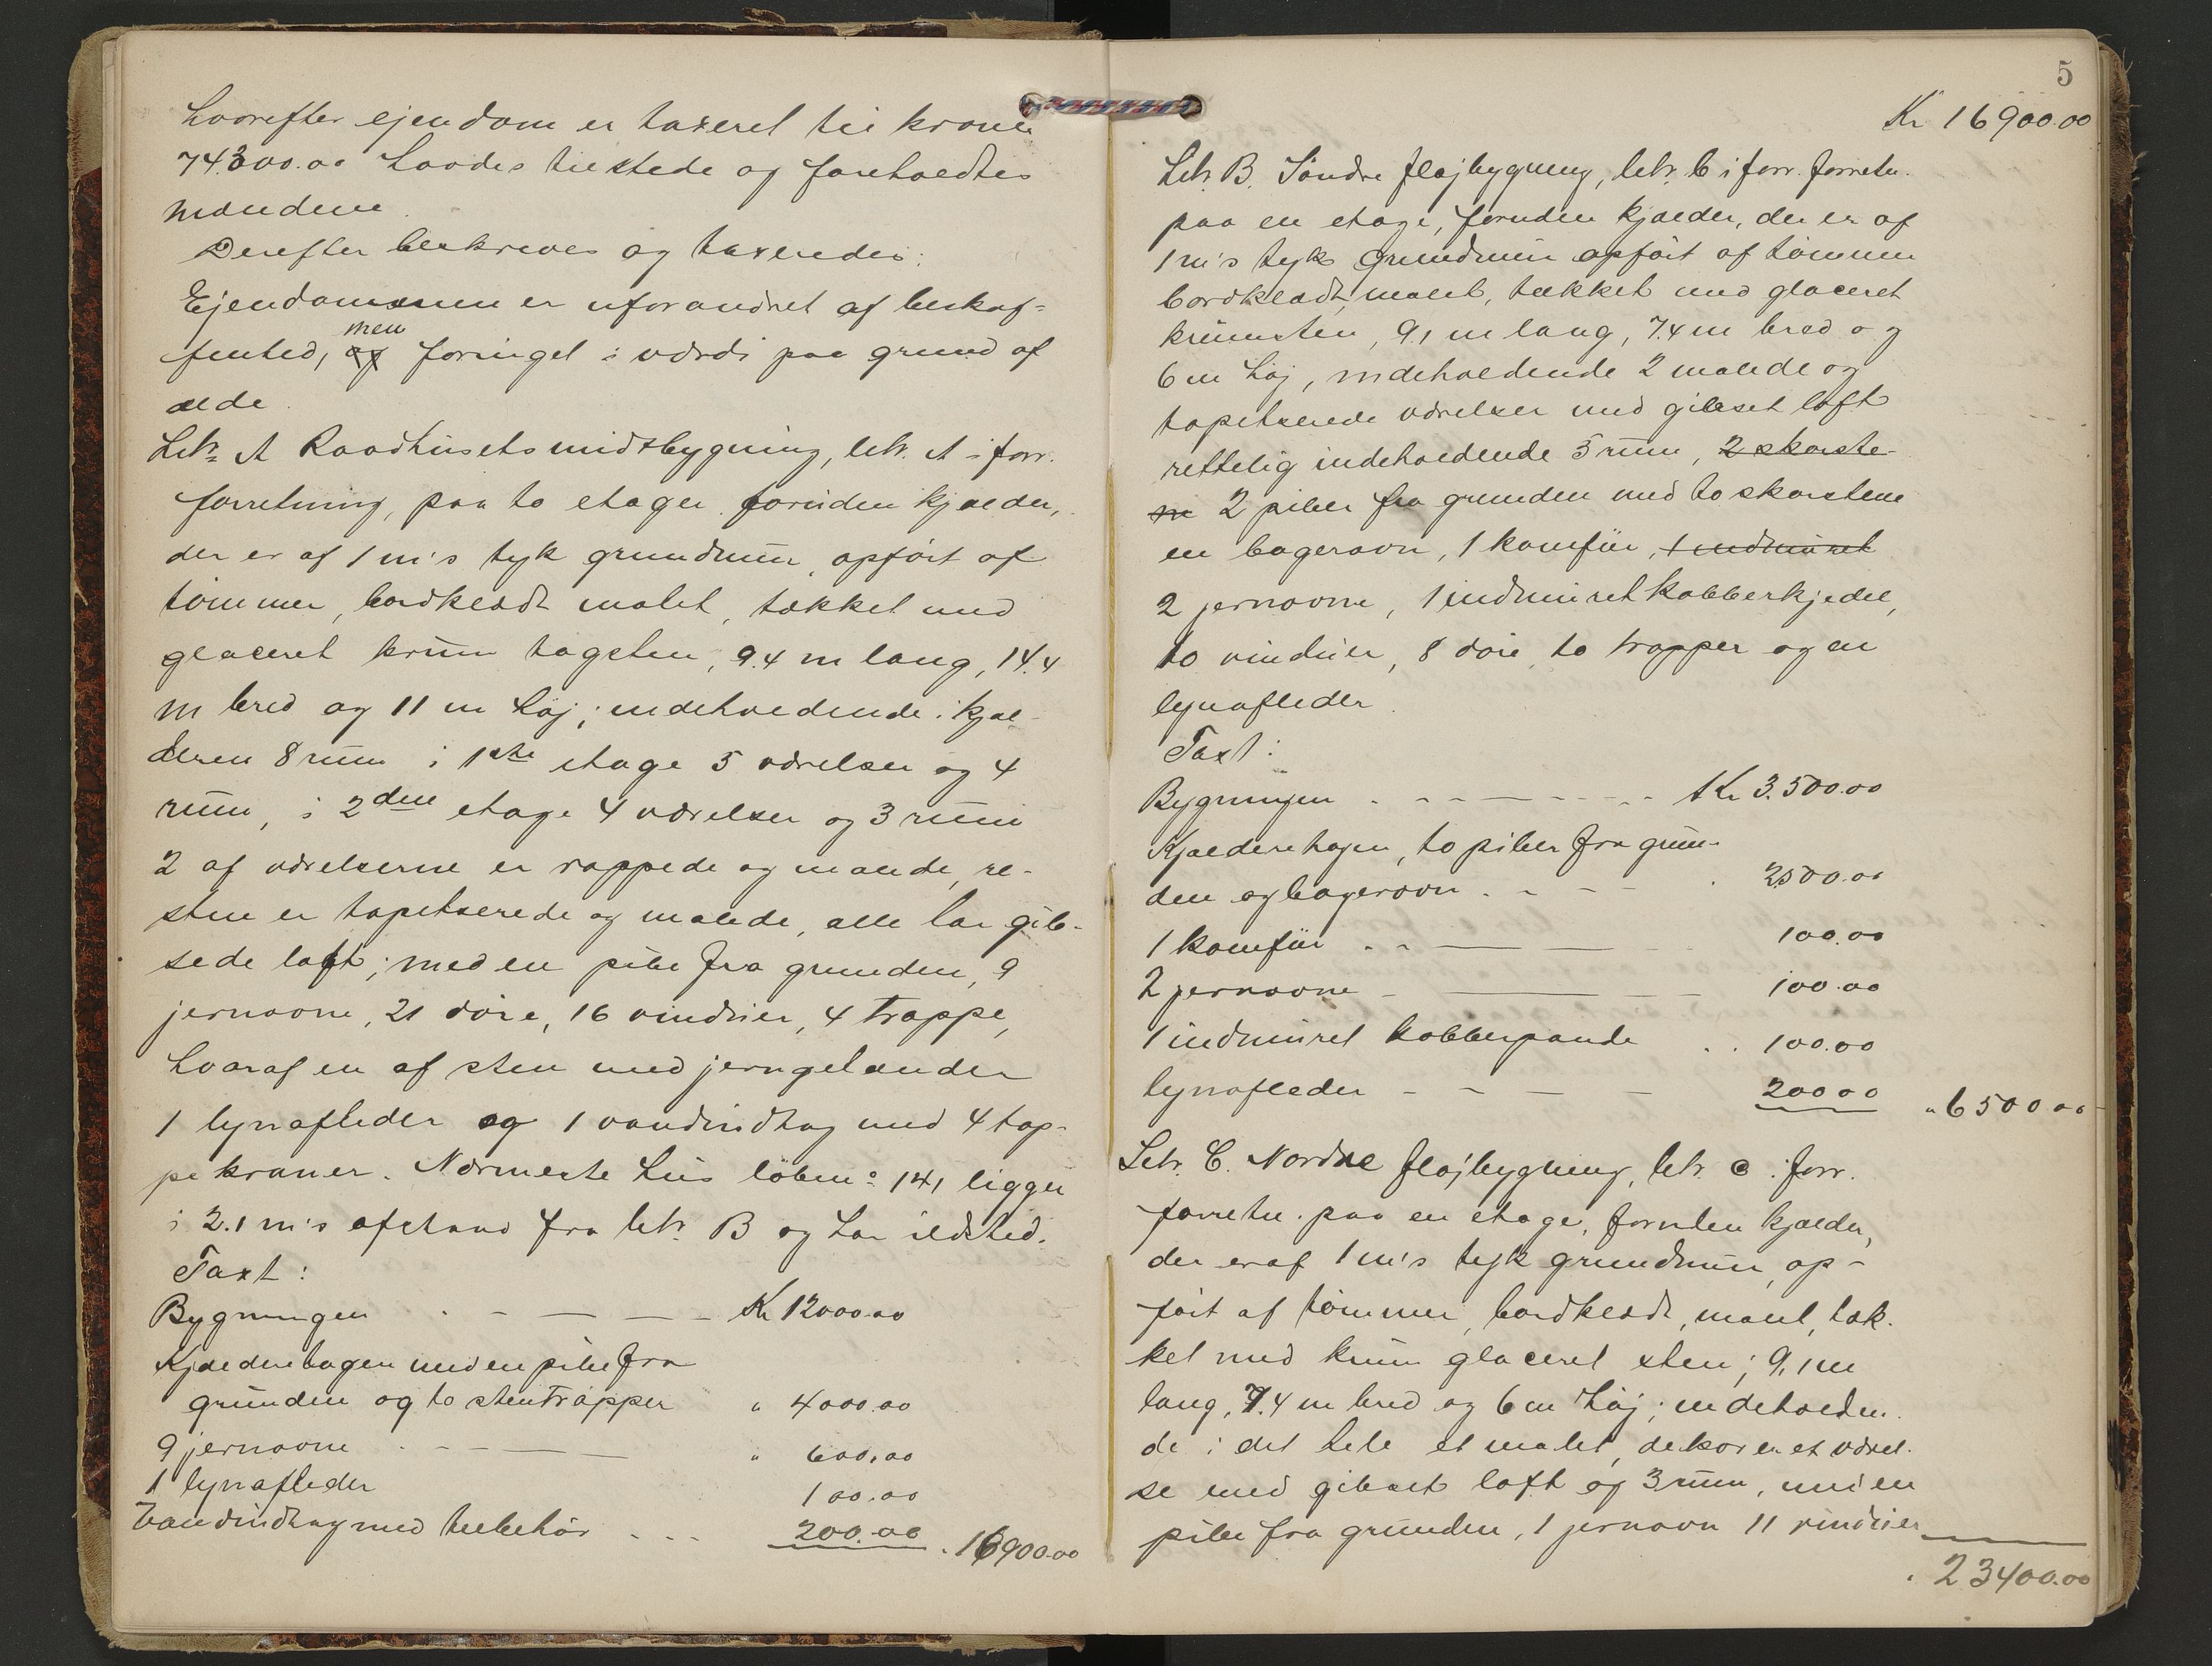 hvorefter ejendom er taxeret til kroner
74.300.00 havdes tilstede og foreholdtes
mændene.
Derefter beskreves og taxeredes:
Ejendommen er uforandret af beskaf-
fenhed, men
og foringet i værdi paa grund af
ælde.
Litr. A Raadhusets midtbygning, litr. A i forr.
forretning, paa to etager foruden kjælder,
der er af 1 m's tyk grundmur, opført af
tømmer, bordklædt malet, tækket med
glaceret krum tagsten, 9.4 m lang, 14.4
m bred og 11 m høj; indeholdende i kjæl-
deren 8 rum i 1ste etage 5 værelser og 4
rum, i 2den etage 4 værelser og 3 rum
2 af værelserne er rappede og malede, re-
sten er tapetserede og malede, alle har gib-
sede loft; med en pibe fra grunden, 9
jernovne, 21 døre, 16 vinduer, 4 trappe,
hvoraf en af sten med jerngelænder
1 lynafleder og 1 vandindtag med 4 tap-
pekraner. Nærmeste hus løben: 141 ligger
i 2.1 m's afstand fra litr. B og har ildsted.
Taxt:
Bygningen Kr 12000.00
Kjælderetagen med en pibe fra
grunden og to stentrapper " 4000.00
9 jernovne " 600.00
1 lynafleder 100.00
Vandindtag med tilbehør 200.00 . 16900.00
5
Kr 16900.00
Litr. B. Søndre fløjbygning, litr. b i forr. forretn.
paa en etage, foruden kjælder, der er af
1 m's tyk grundmur opført af tømmer
bordklædt, malet, tækket med glaceret
krumsten, 9,1 m lang, 7.4 m bred og
6 m høj, indeholdende 2 malede og
tapetserede værelser med gibset loft
rettelig indeholdende 5 rum, 2 skorste-
ne 2 piber fra grunden med to skorstene
en bagerovn, 1 komfur, 1 indmuret
2 jernovne, 1 indmuret kobberkjedel,
10 vinduer, 8 døre, to trapper og en
lynafleder.
Taxt:
Bygningen Kr 3.500.00
Kjælderetagen, to piber fra grun-
den og bagerovn 2500.00
1 komfur 100.00
2 jernovne 100.00
1 indmuret kobberpande 100.00
lynafleder 200 00 " 6500 00
Litr. C. Nordre fløjbygning, litr. c i forr.
forretn. paa en etage, foruden kjælder,
der er af 1 m's tyk grundmur, op-
ført af tømmer, bordklædt, malet, tæk-
ket med krum glaceret sten; 9,1 m
lang, 7.4 m bred og 6 m høj; indeholden-
de i det hele et malet, dekoreret værel-
se med gibset loft og 3 rum, med en
pibe fra grunden, 1 jernovn 11 vinduer
. 23400.00